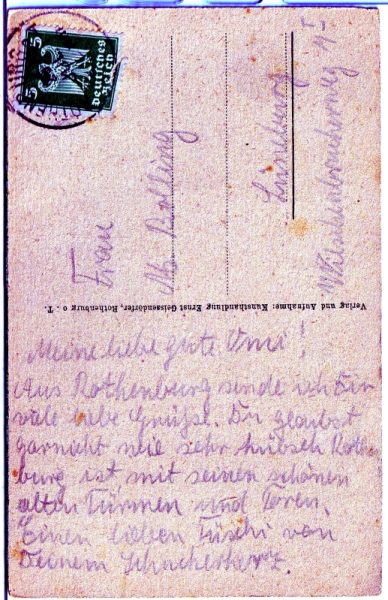 Meine liebe gute Omi!
Aus Rothenburg sende ich Dir
viele liebe Grüße. Du glaubst
garnicht wie sehr hübsch Rothen
burg ist mit seinen schönen
alten Türmen und Toren.
Einen lieben von
Deinem
Frau
M. Bolling
Lüneburg
Verlag und Aufnahme: Kunsthandlung Ernst Geissendörfer, Rothenburg o. T.
5 5
Deutsches
Reich